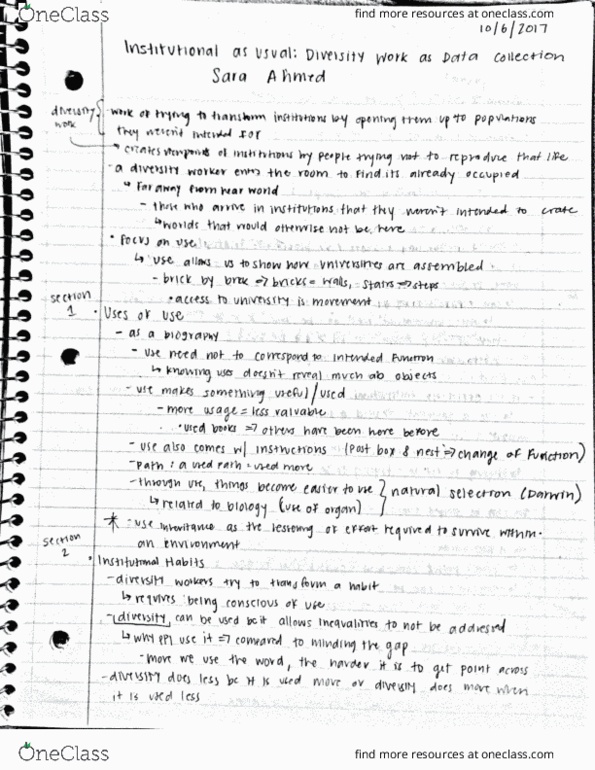 OneClass
find more resources at oneclass.com
10/6/2017
Institutional as usual: Diversity work as Data collection
Sara Ahmed
diversity work
- work of trying to transform institutions by opening them up to populations
they weren't intended for
↳ creates viewpoints of institutions by people trying not to reproduce that life
- a diversity worker enters the room to find its already occupied
↳ far away from near world
- those who arrive in institutions that they weren't intended to crate
↳ worlds that would otherwise not be here
• Focus on use
↳ use allows us to show how universities are assembled
- brick by brick ⇒ bricks = walls, stairs ⇒ steps
• access to university is movement
section 1
• Uses of use
- as a biography
- use need not to correspond to intended function
↳ knowing uses doesn't reveal much ab objects
- use makes something useful/used
- more usage = less valuable
• used books ⇒ others have been here before
- use also comes w/ instructions (post box & nest ⇒ change of function)
- path: a used path = used more
- through use, things become easier to use
↳ related to biology (use of organ)
} natural selection (Darwin)
* - use inheritance as the lessening of effort required to survive within
an environment
section 2
• Institutional Habits
- diversity workers try to transform a habit
↳ requires being conscious of use
- diversity can be used bc it allows inequalities to not be addressed
↳ why ppl use it ⇒ compared to minding the gap
- more we use the word, the harder it is to get point across
- diversity does less bc it is used more or diversity does more when
it is used less
OneClass
find more resources at oneclass.com